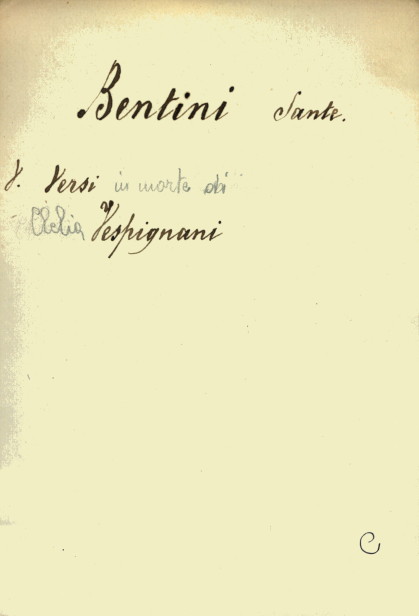 Bentini Sante.
V. Versi in morte di
Clelia Vespignani
C